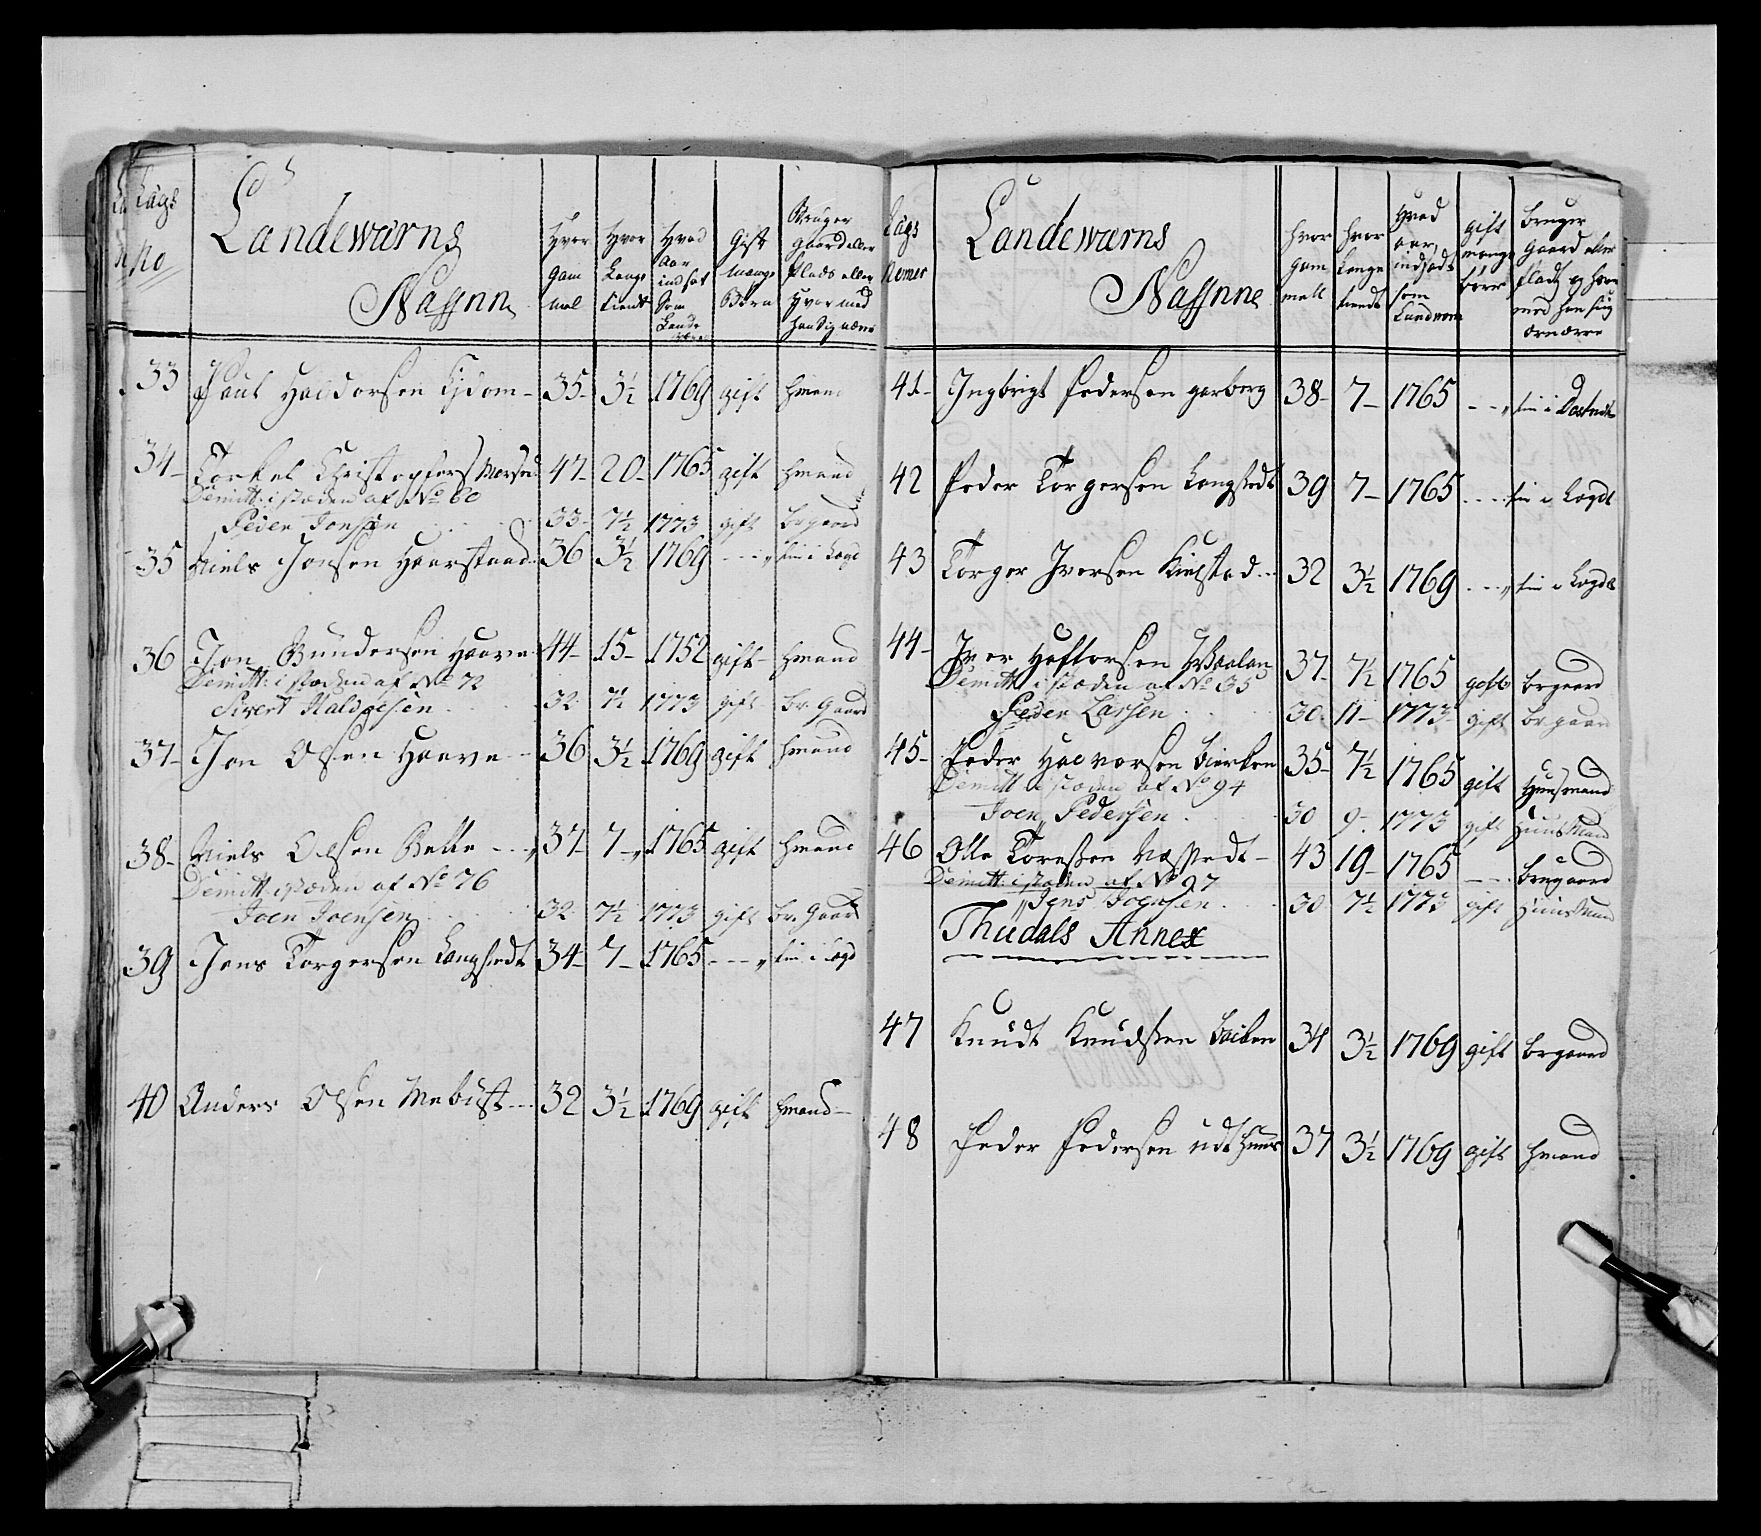 Lags No
Landewærns Nafnn
Hvor Gammel
Hvor Lenge tient
Hvad Aar indsat Som Lande
Gift mange Børn
Bruger gaard eller plads eller Hvor med hand sig nærer
33 Paul Haldorsen 35 3½ 1769 gift hmand
34 Torkel Christophers 47 20 1765 gift hmand
Demitt: i stæden af No 60
Peder Jonsen 33 7½ 1773 gift br gaard
35 Niels Jonsen Haarstaad 36 3½ 1769 - - - tin i Lægd
36 Jon Gundersen Haave 44 15 1752 gift hmand
Demitt: i stæden af No 72
Sivert Haldosen 32 7½ 1773 gift br. Gaard
37 Jon Olsen Haave 36 3½ 1769 gift hmand
38 Niels Olsen 37 7 1765 gift hmand
Demitt: i stæden af No 76
Joen Joensen 32 7½ 1773 gift br. Gaard
39 Jens Torgersen Langstedt 34 7 1765 - - - tin i Lægd
40 Anders Olsen Mebust 32 3½ 1769 gift hmand
Lags Nomer
Landewærns Nafnne
hvor gammell
hvor lenge tiendt
Hvad aar, indsadt som Landværn
gift mange børn
bruger Gaard eller pladz og hvor med han sig ernærer
41 Ingbrigt Pedersen garberg 38 7 1765 - - - tin i
42 Peder Torgersen Langstedt 39 7 1765 - - - tin i Lægd
43 Torger Iversen Kielstad 32 3½ 1769 - - - tin i Lægd
44 Iver Haftorsen 37 7½ 1765 gift brgaard
Demitt i stæden af No 35
Peder Larsen 30 11 1773 gift br gaard
45 Peder Halvorsen Bierken 35 7½ 1765 gift Huusmand
Demitt i stæden af No 94
Joen Pedersen 30 9 1773 gift Huusmand
46 Olle Toresen 43 19 1765 - - - brugaard
Demitt: i stæden af No 97
Jens Joensen 30 7½ 1773 gift Huusmand
Thudals Annex
47 Knudt Knudsen 34 3½ 1769 gift brgaard
48 Peder Pedersen udthuus 37 3½ 1769 gift hmand